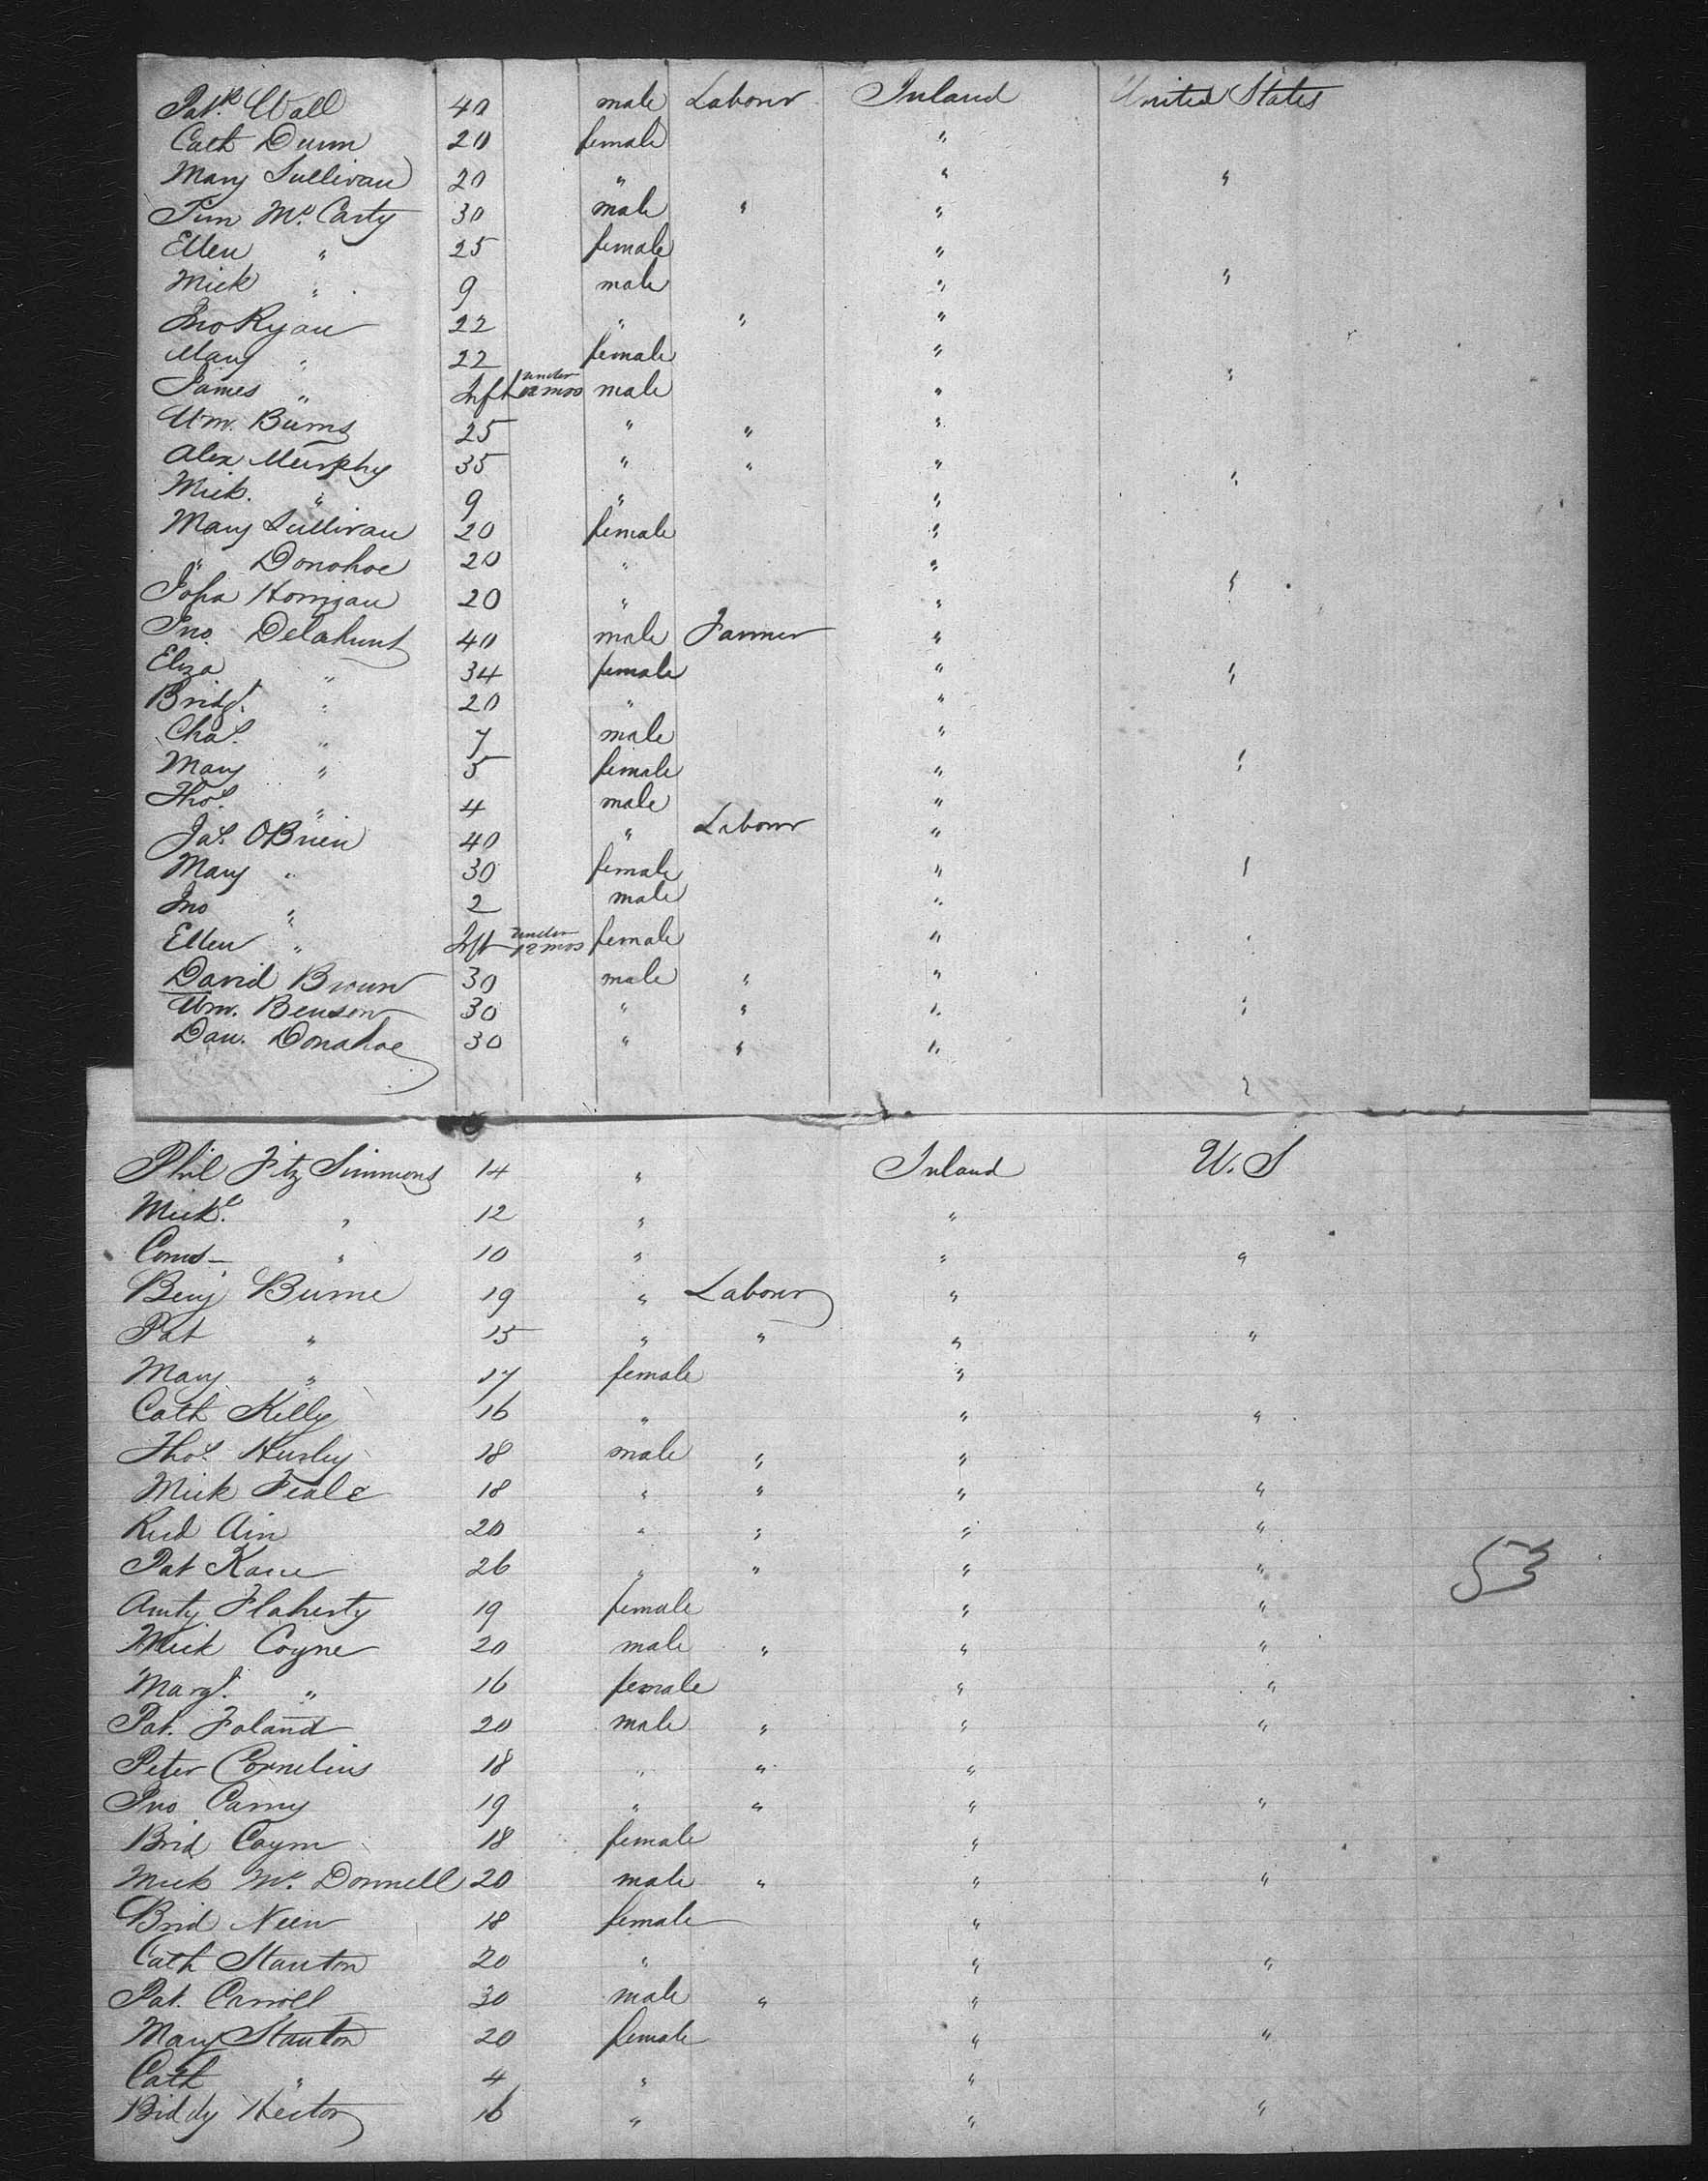 Patk Wall 40 male Labourer Ireland United States
Cath Dunn 20 female "
Mary Sullivan 20 " " "
Tim Mc. Carty 30 male " "
Ellen " 25 female "
Mick " 9 male " "
Jno Ryan 22 " " "
Mary " 22 female "
James " Inft under 12 mos male " "
Wm. Burns 25 " " "
Alex Murphy 35 " " " "
Mick. " 9 " "
Mary Sullivan 20 female "
" Donohoe 20 " "
Joha Horrigan 20 " " "
Jno. Delahunt 40 male Farmer "
Eliza " 34 female " "
Bridgt. " 20 " "
Chas. " 7 male "
Mary " 5 female " "
Thos. " 4 male "
Jas. OBrien 40 " Labourer "
Mary " 30 female " "
Jno " 2 male "
Ellen " Inft under 12 mos female " "
David Brown 30 male " "
Wm. Benson 30 " " " "
Dan. Donahoe 30 " " "
"
Phil Fitz Simmons 14 " Ireland U.S
Mickl. " 12 " "
Corns " 10 " " "
Benj Burne 19 " Labourer "
Pat " 15 " " " "
Mary " 17 female "
Cath Killy 16 " " "
Thos. Hurley 18 male " "
Mick Feale 18 " " " "
Red Ain 20 " " " "
Pat Kane 26 " " " " 53
Flaherty 19 female " "
Mick Coyne 20 male " " "
Margt. " 16 female " "
Pat. Foland 20 male " " "
Peter Cornelius 18 " " "
Jno Carny 19 " " " "
Brid Coyne 18 female "
Mick Mc. Donnell 20 male " " "
Brid Neen 18 female "
Cath Stanton 20 " " "
Pat. Carroll 30 male " "
Mary Stanton 20 female " "
Cath " 4 " "
Biddy Hector 16 " " "